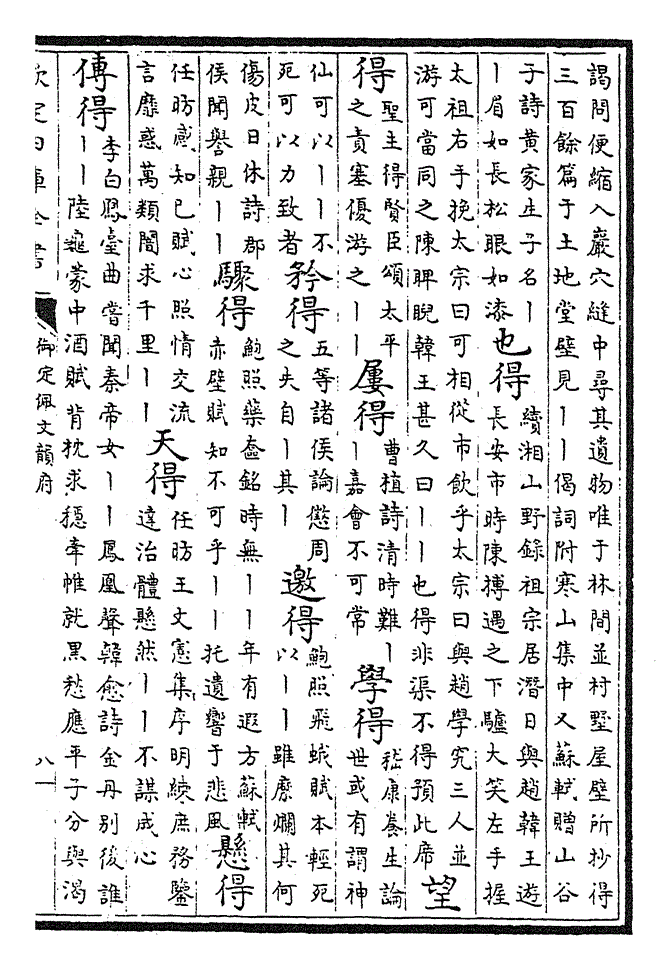 謁問便縮入巖穴縫中尋其遺物唯于林間並村墅屋壁所抄得
三百餘篇于土地堂壁見丨丨偈詞附寒山集中又蘇軾贈山谷
子詩黃家生子名丨
丨眉如長松眼如漆
也得
續湘山野錄祖宗居潛日與趙韓王遊
長安市時陳摶遇之下驢大笑左手握
太祖右手挽太宗曰可相從市飲乎太宗曰與趙學究三人並
游可當同之陳睥睨韓王甚久曰丨丨也得非渠不得預此席
望
得
聖主得賢臣頌太平
之責塞優游之丨丨
屢得
曹植詩清時難丨
丨嘉會不可常
學得
嵇康養生論
世或有謂神
仙可以丨丨不
死可以力致者
矜得
五等諸侯論懲周
之失自丨其丨
邀得
鮑照飛蛾賦本輕死
以丨丨雖糜爛其何
傷皮日休詩郡
侯聞譽親丨丨
驟得
鮑照藥奩銘時無丨丨年有遐方蘇軾
赤壁賦知不可乎丨丨托遺響于悲風
懸得
任昉感知己賦心照情交流
言靡惑萬類闇求千里丨丨
天得
任昉王文憲集序明練庶務鑒
達治體懸然丨丨不謀成心
傳得
李白鳳臺曲嘗聞秦帝女丨丨鳳凰聲韓愈詩金丹別後誰
丨丨陸龜蒙中酒賦背枕求穩牽帷就黑愁應平子分與渴
欽定四庫全書
御定佩文韻府
八一